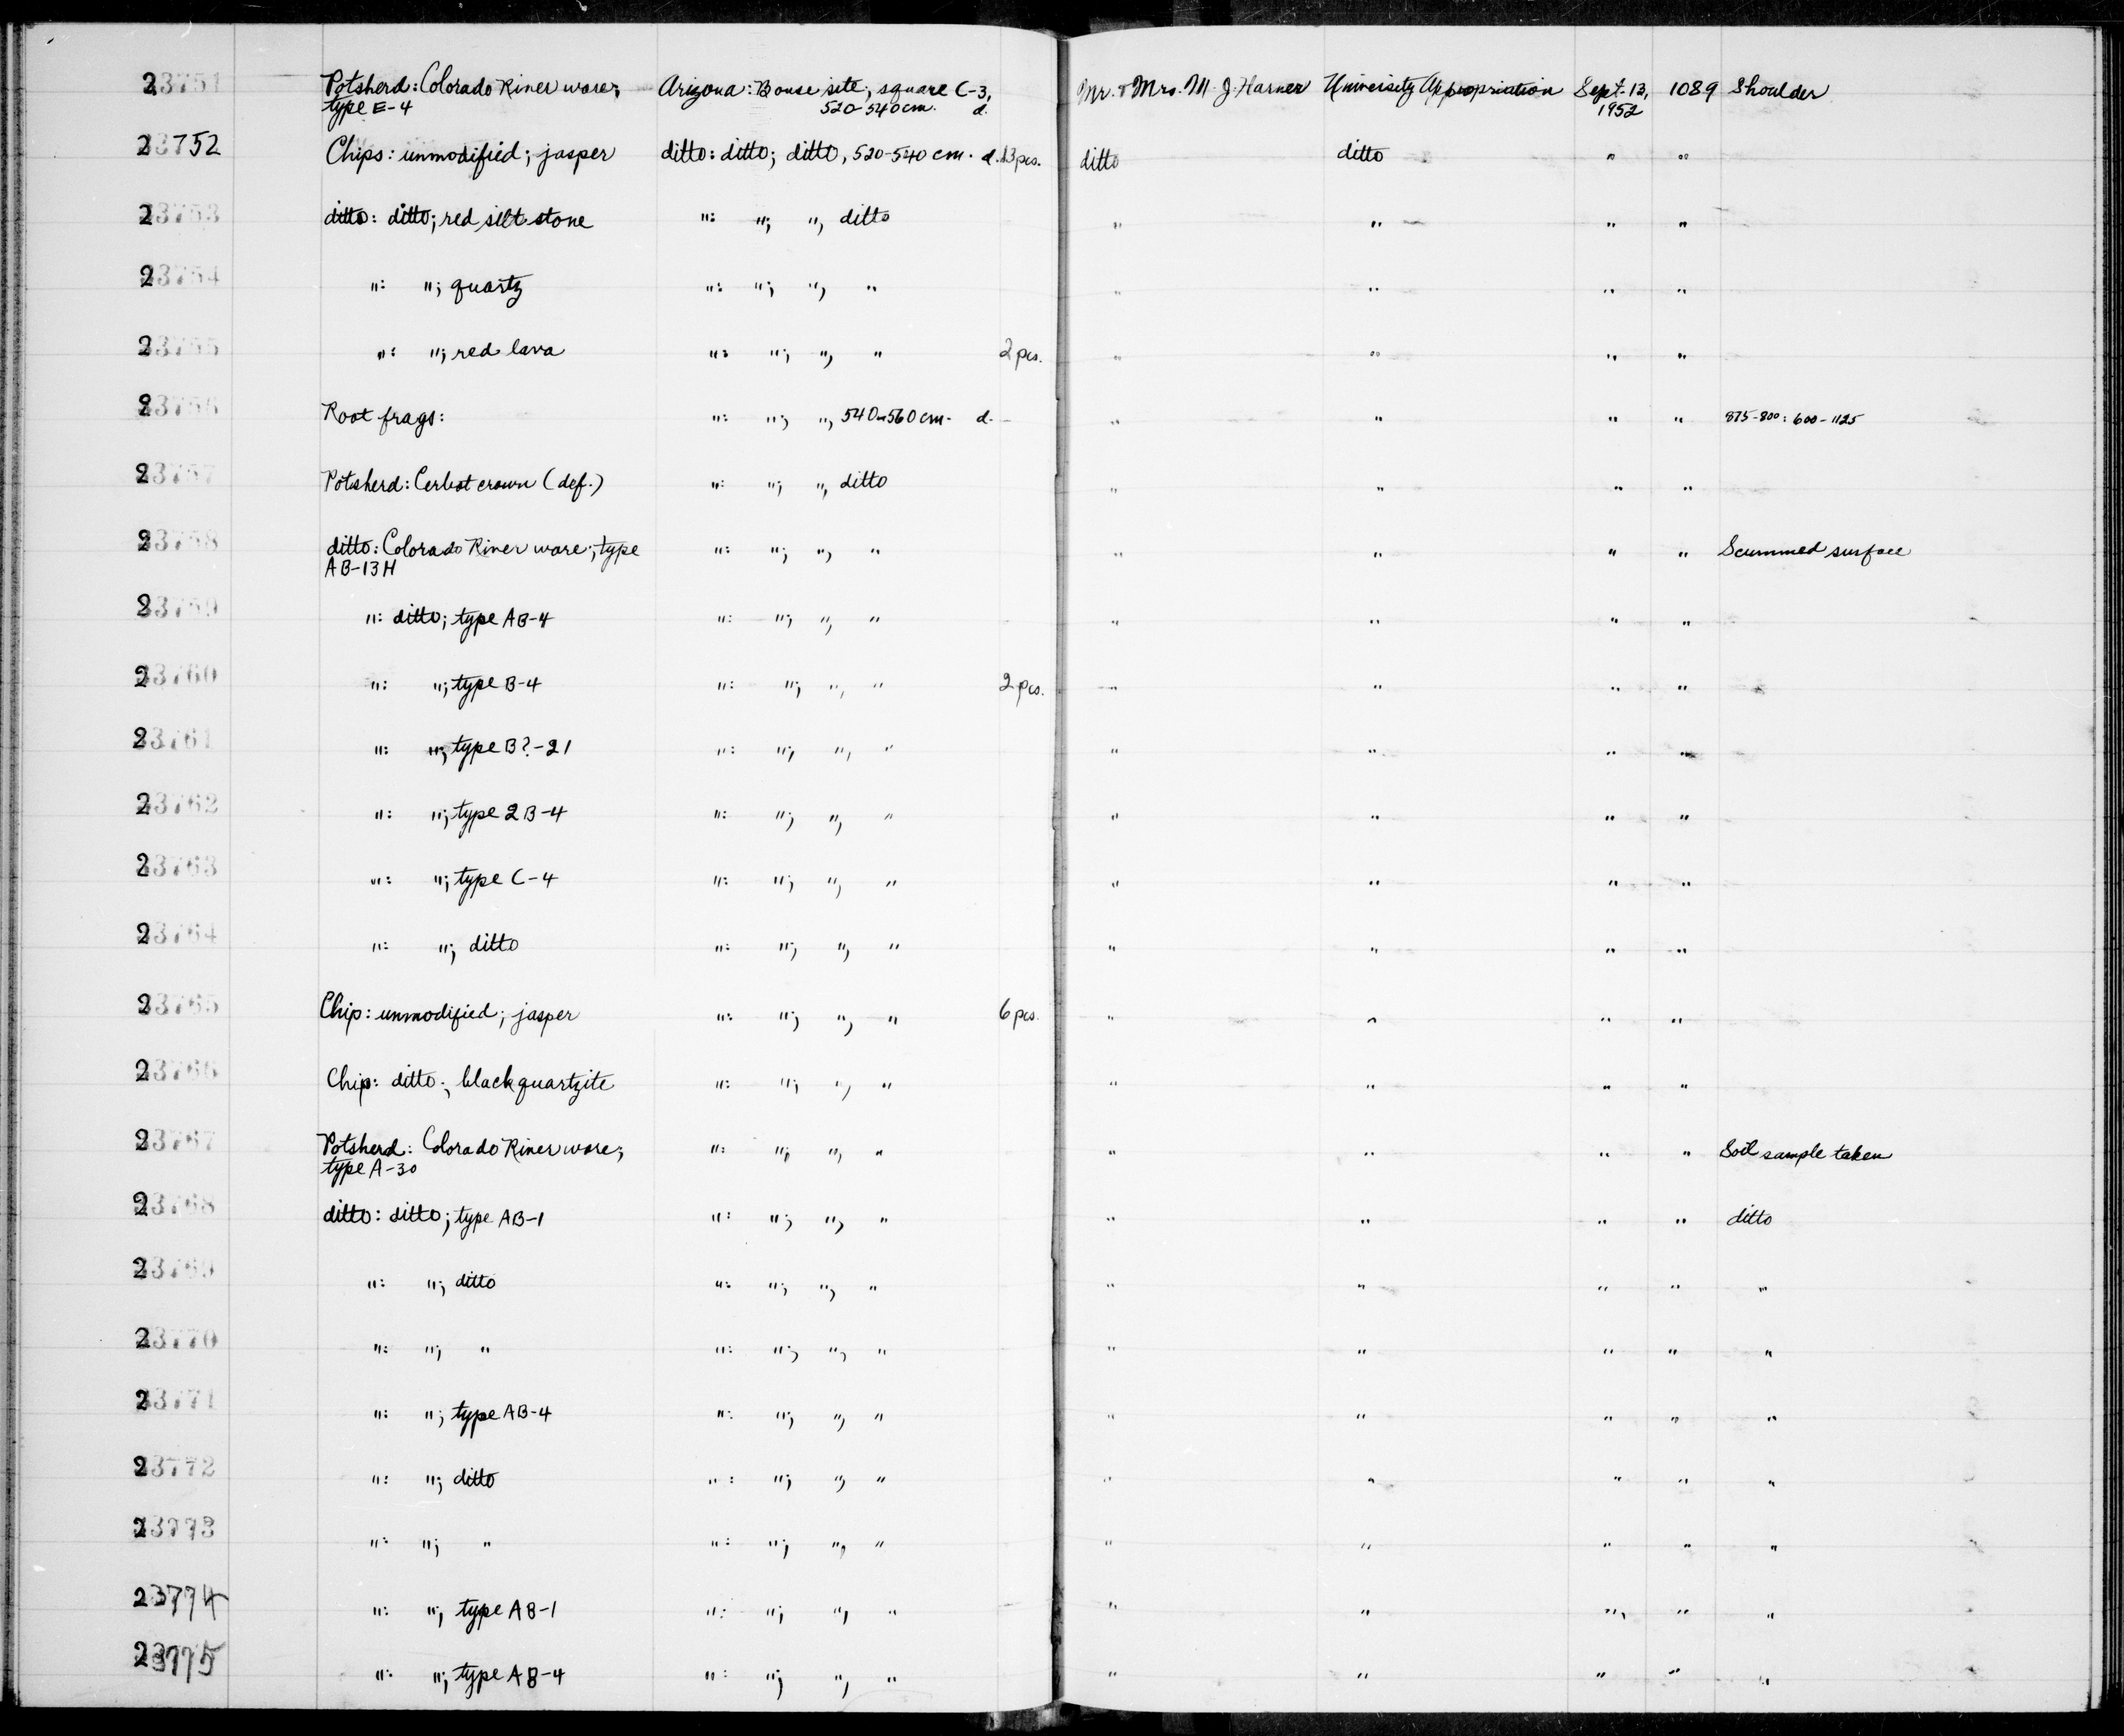 23751 Potsherd: Colorado River ware; Arizona: Bouse site; square C-3, Mr. & Mrs. M. J. Harner University Appropriation Sept. 13, 1089 Shoulder
type E-4 520-540 cm. d. 1952
23752 Chips: unmodified; jasper ditto: ditto; ditto, 520-540 cm. d. 13 pcs. ditto ditto " "
23753 ditto: ditto; red silt stone ": "; ", ditto " " " "
23754 ": "; quartz ": "; ", " " " " "
23755 ": "; red lava ": "; ", " 2 pcs. " " " "
23756 Root frags: ": "; ", 540-560 cm. d. - " " " " 875-800: 600-1125
23757 Potsherd: Cerbat brown (def.) ": "; ", ditto " " " "
23758 ditto: Colorado River ware; type ": "; ", " " " " " Scummed surface
AB-13H
23759 ": ditto; type AB-4 ": "; ", " " " " "
23760 ": "; type B-4 ": "; ", " 2 pcs. " " " "
23761 ": "; type B?-21 ": "; ", " " " " "
23762 ": "; type 2B-4 ": "; ", " " " " "
23763 ": "; type C-4 ": "; ", " " " " "
23764 ": "; ditto ": "; ", " " " " "
23765 Chip: unmodified; jasper ": "; ", " 6 pcs. " " " "
23766 Chip: ditto; black quartzite ": "; ", " " " " "
23767 Potsherd: Colorado River ware; ": "; ", " " " " " Soil sample taken
type A-30
23768 ditto: ditto; type AB-1 ": "; ", " " " " " ditto
23769 ": "; ditto ": "; ", " " " " " "
23770 ": "; " ": "; ", " " " " " "
23771 ": "; type AB-4 ": "; ", " " " " " "
23772 ": "; ditto ": "; ", " " " " " "
23773 ": "; " ": "; ", " " " " " "
23774 ": "; type AB-1 ": "; ", " " " " " "
23775 ": "; type AB-4 ": "; ", " " " " " "